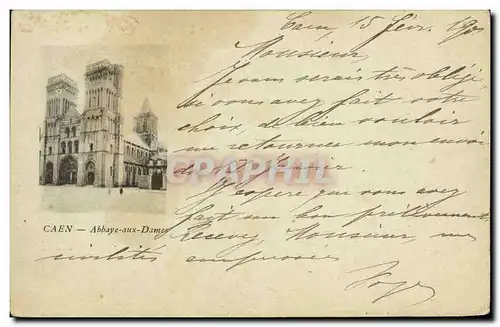 Caen 15 févr. 190
Monsieur,
Je vous serais très obligé,
si vous avez fait votre
choix, de bien vouloir
me retourner mon envoi
du
J'espère que vous avez
fait un bon prélèvement
Recevez, Monsieur, mes
civilités empressées
CPARAMA
CAEN — Abbaye-aux-Dames